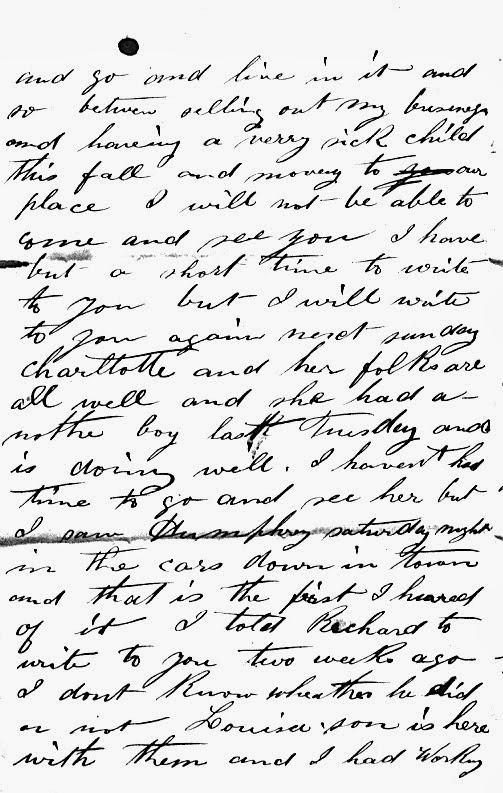 and go and live in it and
so betwen selling out my business
and haveing a verry sick child
this fall and moveing to our
place I will not be able to
come and see you I have
but a short time to write
to you but I will write
to you again next sunday
charlttotte and her folks are
all well and she had a-
nothe boy last Tuesday and
is doing well. I havent had
time to go and see her but
I saw Humphrey saturday night
in the cars down in town
and that is the first I heared
of it I told Richard to
write to you two weeks ago
I dont Know wheather he did
or not Louisa son is here
with them and I had Working